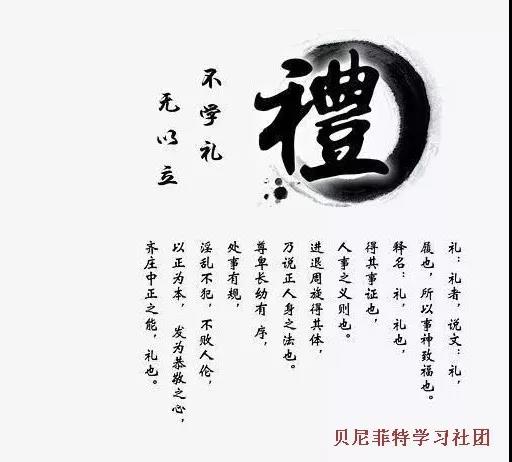 禮
不学礼
无以立
礼：礼者，说文：礼，
履也，所以事神致福也。
释名：礼，礼也，
得其事证也，
人事之义则也。
进退周旋得其体，
乃说正人身之法也。
尊卑长幼有序，
处事有规，
淫乱不犯，不败人伦，
以正为本，发为恭敬之心，
齐庄中正之能，礼也。
贝尼菲特学习社团